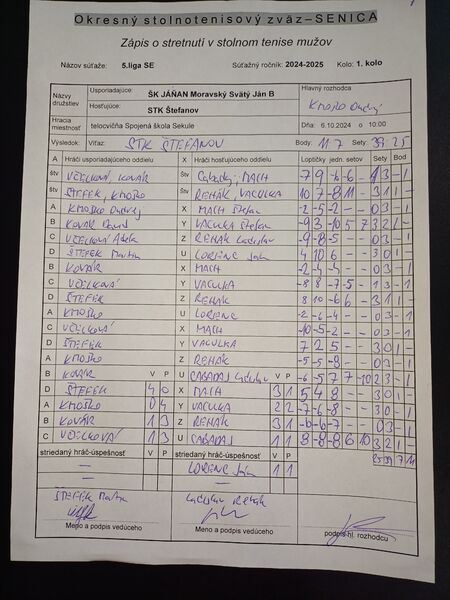 Okresný stolnotenisový zväz – SENICA
Zápis o stretnutí v stolnom tenise mužov
Názov súťaže: 5.liga SE Súťažný ročník: 2024-2025 Kolo: 1. kolo
Názvy družstiev Usporiadajúce: ŠK JÁŇAN Moravský Svätý Ján B Hlavný rozhodca
Hosťujúce: STK Štefanov KMOŠKO Ondrej
Hracia miestnosť telocvičňa Spojená škola Sekule Dňa: 6.10.2024 o 10:00
Výsledok: Víťaz: STK ŠTEFANOV Body: 11:7 Sety: 39:25
A Hráči usporiadajúceho oddielu X Hráči hosťujúceho oddielu Loptičky jedn. setov Sety Bod
štv VČELKOVÁ, KOVÁR Štv CABADAJ, MACH -7 9 -6 -6 - 1 3 - 1
štv ŠTEFEK, KMOŠKO Štv REHÁK, VACULKA 10 7 -8 11 - 3 1 1 -
A KMOŠKO Ondrej X MACH Štefan -2 -5 -2 - - 0 3 - 1
B KOVÁR David Y VACULKA Štefan -9 3 -10 5 7 3 2 1 -
C VČELKOVÁ Adela Z REHÁK Ladislav -9 -8 -5 - - 0 3 - 1
D ŠTEFEK Martin U LORENC Ján 4 10 6 - - 3 0 1 -
B KOVÁR X MACH -2 -4 -4 - - 0 3 - 1
C VČELKOVÁ Y VACULKA -8 8 -7 -5 - 1 3 - 1
D ŠTEFEK Z REHÁK 8 10 -6 6 - 3 1 1 -
A KMOŠKO U LORENC -2 -6 -4 - - 0 3 - 1
C VČELKOVÁ X MACH -10 -5 -2 - - 0 3 - 1
D ŠTEFEK Y VACULKA 7 2 5 - - 3 0 1 -
A KMOŠKO Z REHÁK -5 -5 -9 - - 0 3 - 1
B KOVÁR V P U CABADAJ Ladislav V P -6 5 7 7 -10 2 3 - 1
D ŠTEFEK 4 0 X MACH 3 1 5 4 8 - - 3 0 1 -
A KMOŠKO 0 4 Y VACULKA 2 2 -7 -6 -8 - - 0 3 - 1
B KOVÁR 1 3 Z REHÁK 3 1 -6 -6 -7 - - 0 3 - 1
C VČELKOVÁ 1 3 U CABADAJ 1 1 8 -8 -8 6 10 3 2 1 -
striedaný hráč-úspešnosť V P striedaný hráč-úspešnosť V P 25 39 7 11
— LORENC Ján 1 1
— —
ŠTEFEK Martin Ladislav Rehák
Meno a podpis vedúceho Meno a podpis vedúceho podpis hl. rozhodcu